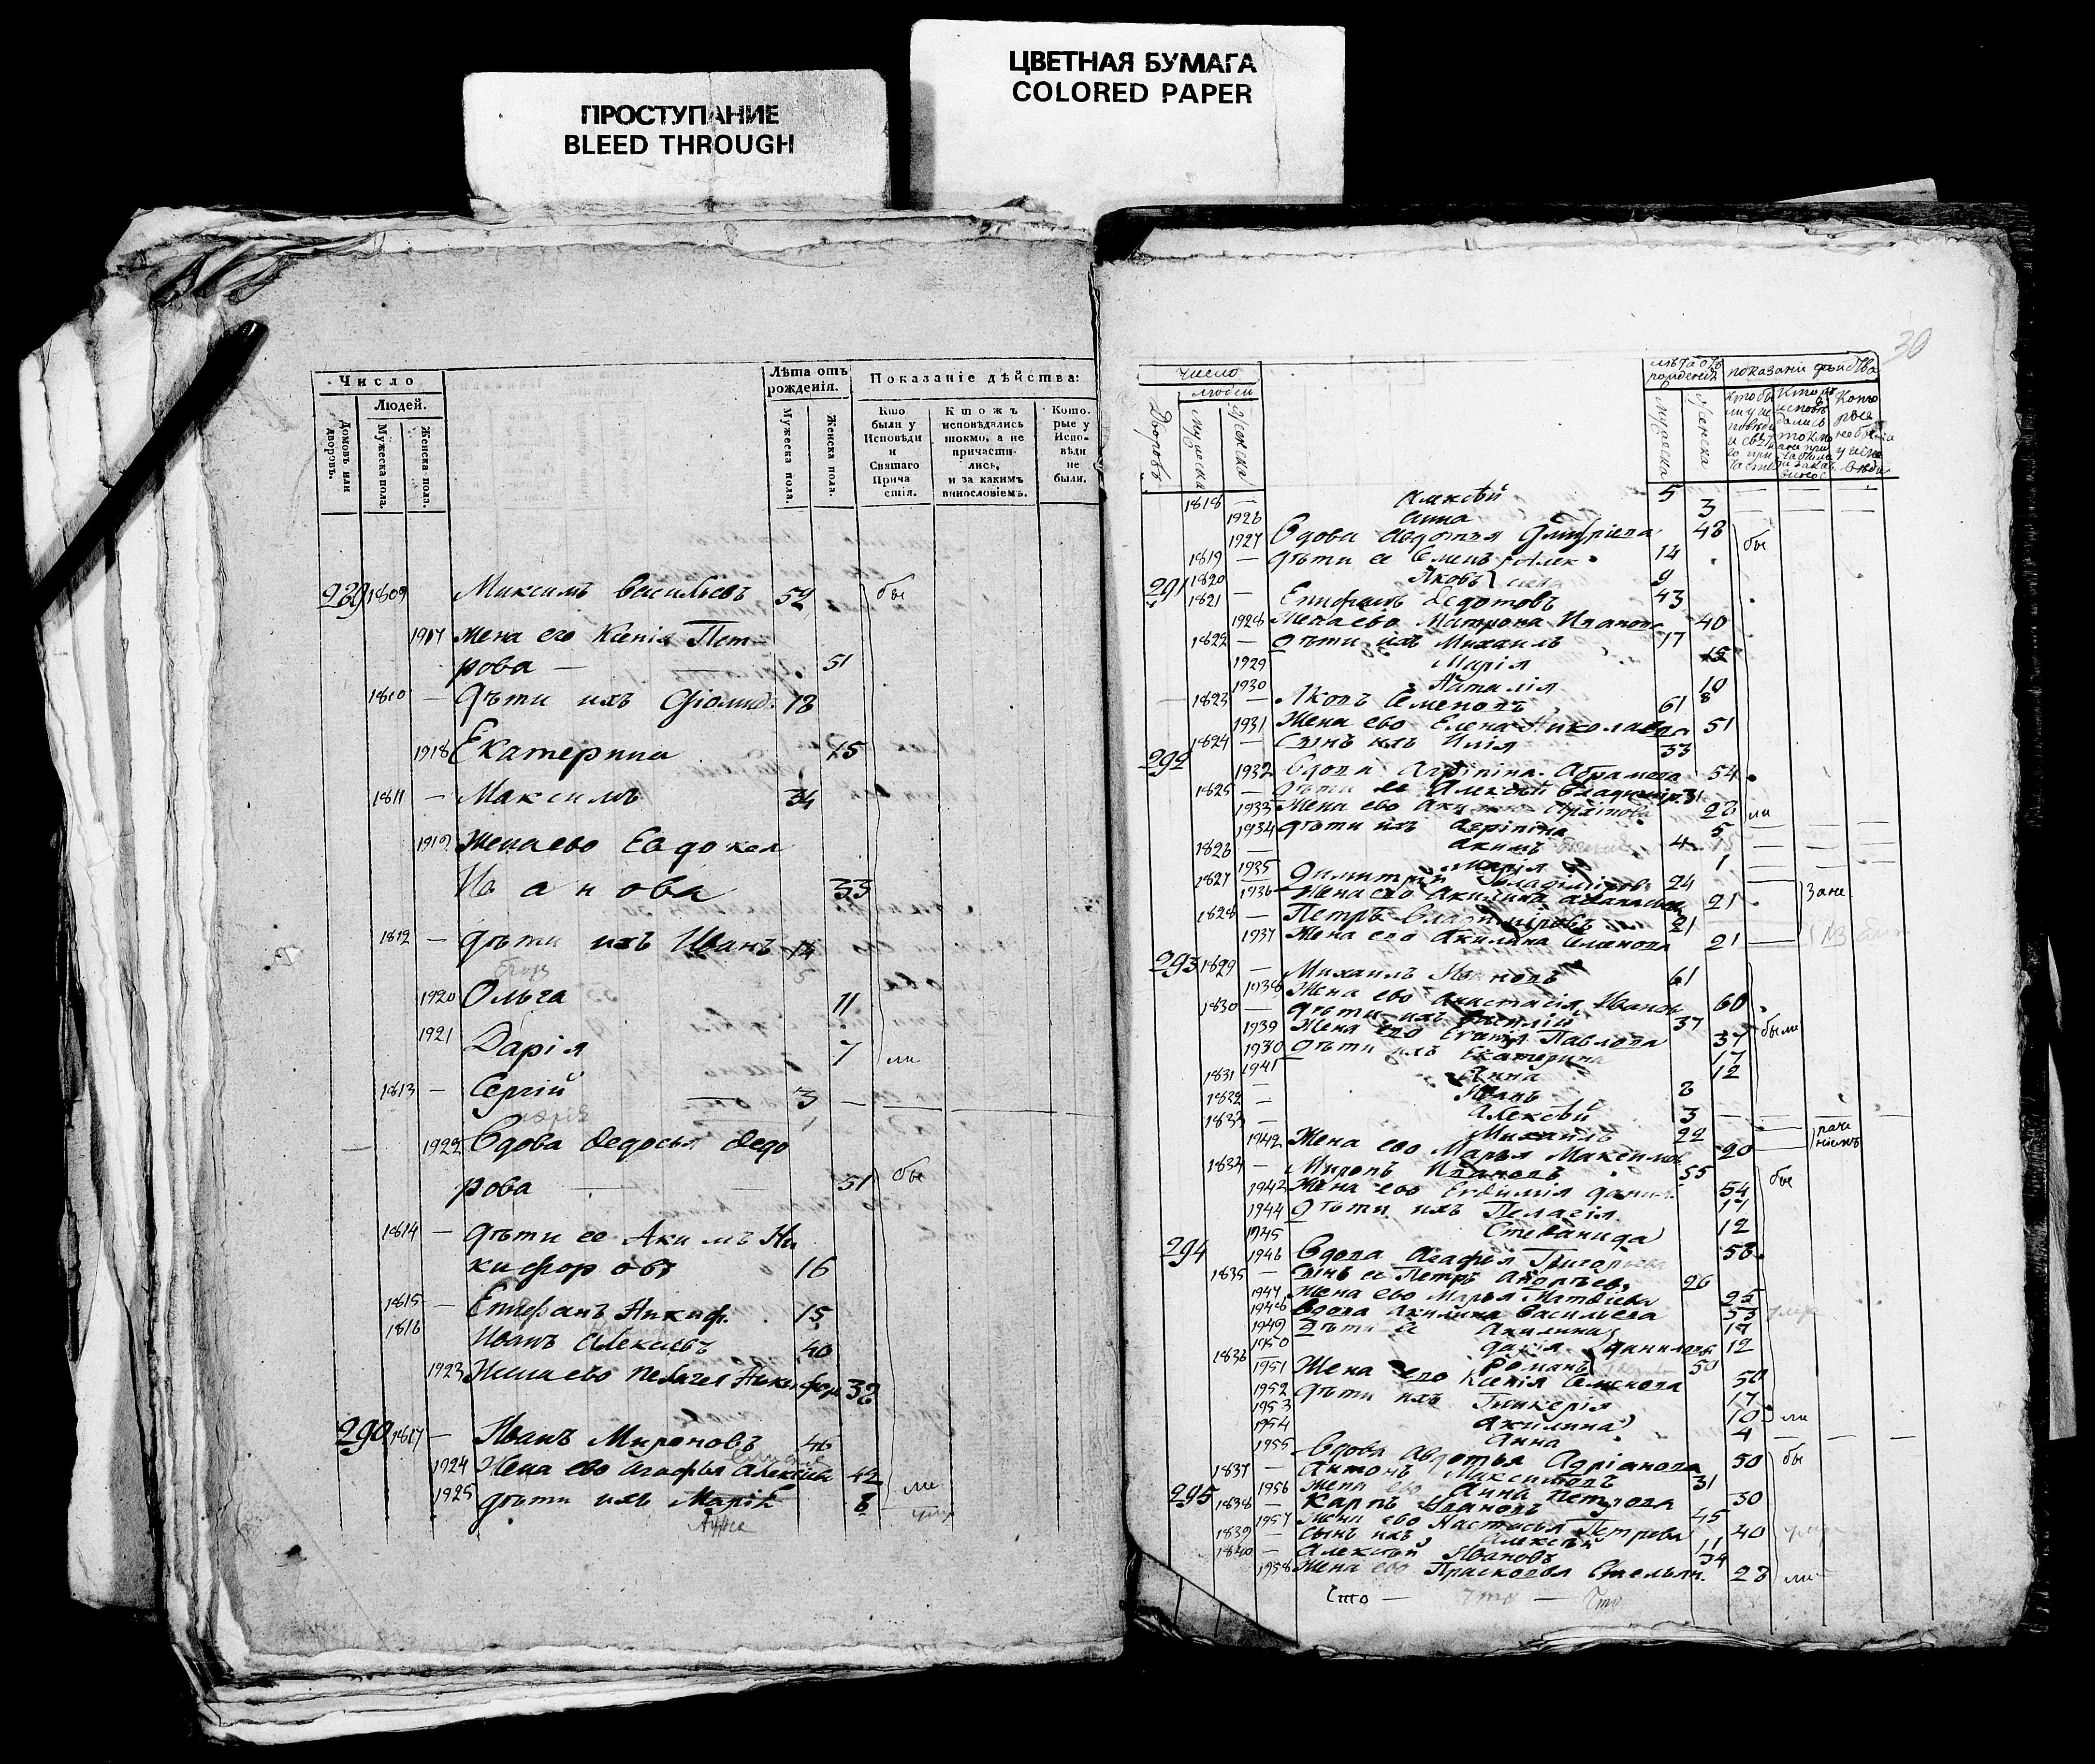 ПРОСТУПАНИЕ
BLEED THROUGH
ЦВЕТНАЯ БУМАГА
COLORED PAPER
Число
Людей.
Домовъ или дворовъ.
Мужеска пола.
Женска пола.
Лѣта отъ рожденія.
Мужеска пола.
Женска пола.
Показаніе дѣйства:
Кто были у Исповѣди и Святаго Прича стія.
Ктожъ исповѣдались токмо, а не причасти- лись, и за какимъ винословіемъ.
Кото- рые у Испо- вѣди не были.
289 1809 Максимъ Васильевъ 59 бы
1917 жена его Ксенія Пет
рова — 51
1810 — дѣти ихъ 18
1918 Екатерина 15
1811 — Максимъ 34
1919 Жена ево Евдокея
Иванова 33
1812 — дѣти ихъ Иванъ 14
1920 Ольга 11
1921 Дарія 7 ли
1813 — Сергій — 3 — — —
1922 Вдова Федосья Федо
рова — 51 бы
1814 — дѣти ее Акимъ Ни
кифоровъ 16
1815 — Епифанъ Никиф. 15
1816 Иванъ Алексѣевъ 40
1923 Жена ево Пелагея Никифор 32
290 1817 — Иванъ Мироновъ 46
1924 Жена ево Агафья Алексѣева 42 ли
1925 дѣти ихъ Марія 8
Анна
30
Число
Людей
Дворовъ
Мужеска
Женска
лѣта отъ рожденія
мужеска
женска
показаніи дѣйства
1818 — Алексѣй 5 — — —
1926 Анна 3 — — —
1927 Вдова Авдотья Дмитріева 48 бы
1819 — дѣти ее Семенъ Алек 14
1820 Яковъ 9
291 1821 — Епифанъ Федотовъ 43
1928 Жена ево Матрона Иванова 40
1822 — дѣти ихъ Михаилъ 17
1929 Марія 15
1930 Наталія 10
1823 — Яковъ Семеновъ 61
1931 Жена ево Елена Николаева 51
1824 — Сынъ ихъ Илія 33
292 1932 Вдова Агрипина Абрамова 54
1825 — дѣти ее Алексѣй Владимір. 31
1933 Жена ево Архипова 28 ли
1934 дѣти ихъ Агріпіна 5 — — —
1826 — Акимъ 4 — — —
1935 Марія 1 — — —
1827 Димитрій Владіміровъ 24 — Зане
1936 Жена его Акилина 21
1828 — Петръ Владиміровъ 21
1937 Жена его Акилина Семенова 21 —
293 1829 — Михаилъ Ивановъ 61
1938 Жена ево Анастасія Иванов 60
1830 — дѣти ихъ Василій 37 были
1939 Жена его Павлова 37
1930 дѣти ихъ Екатерина 17
1941 Анна 12
1831 — Иванъ 8
1832 — Алексѣй 3 — — —
1833 Михаилъ 22 — раче
1942 Жена ево Марья Максимов 20 — ніемъ
1834 — Миронъ Ивановъ 55 бы
1942 Жена ево Евдимія Данил. 54
1944 дѣти ихъ Пелагія 17
1945 Стефанида 12
294 1946 Вдова Агафья Григорьева 58
1835 — Сынъ ее Петръ Андреев. 26
1947 Жена ево Марья Матвіева 25
1948 Вдова Акилина Васильева 53
1949 дѣти ее Акилина 17
1950 Дарія Данилов 12
1836 — Романъ 50
1951 Жена его Ксенія Семенова 50
1952 дѣти ихъ Гликерія 17
1953 Акилина 10 ли
1954 Анна 4 — — —
1955 Вдова Авдотья Адріанова 50 бы
1837 — Антонъ Максимовъ 31
1956 Жена ево Анна Петрова 30
295 1838 — Карпъ Ивановъ 45
1957 Жена ево Настасья Петрова 40
1839 — сынъ ихъ Алексѣй 11
1840 — Алексѣй Ивановъ 34
1958 Жена ево Прасковья Емельян. 28 ли
Что — Что — Что